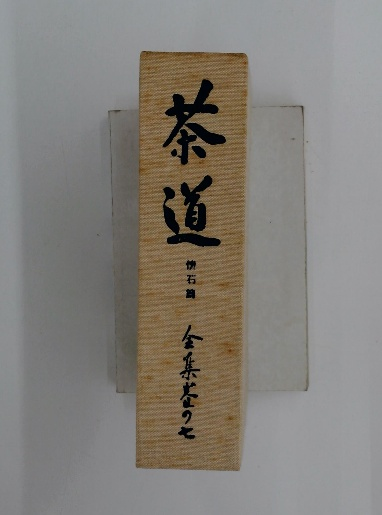 茶道
懐石篇
全集巻の七